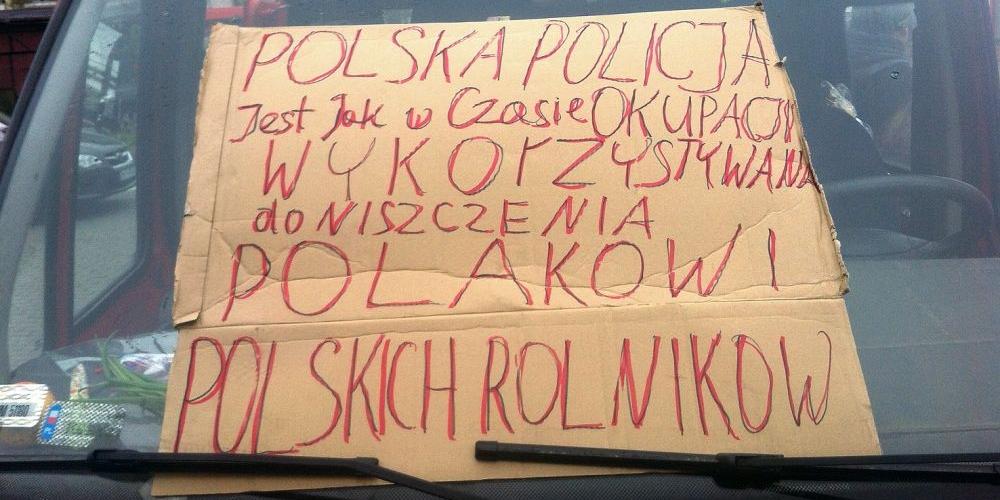 POLSKA POLICJA
Jest Jak w Czasie OKUPACJI
WYKOrZYSTYWANA
do NISZCZENIA
POLAKOW I
POLSKICH ROLNIKOW